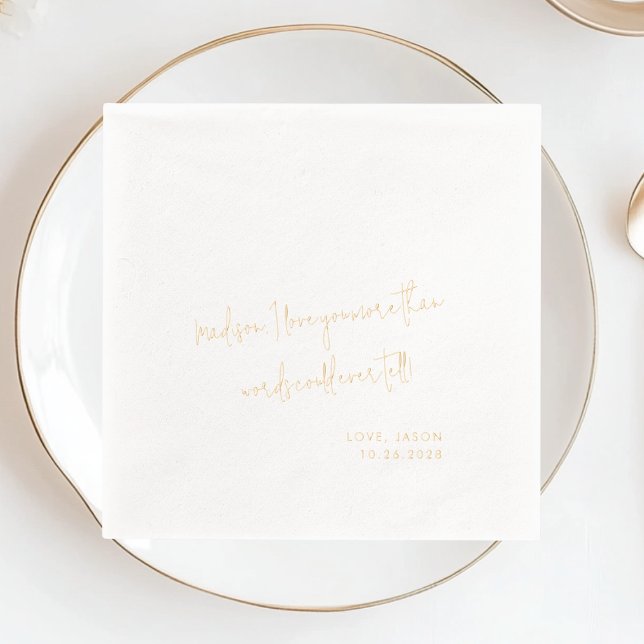 Madison, I love you more than
words could ever tell!
LOVE, JASON
10.26.2028